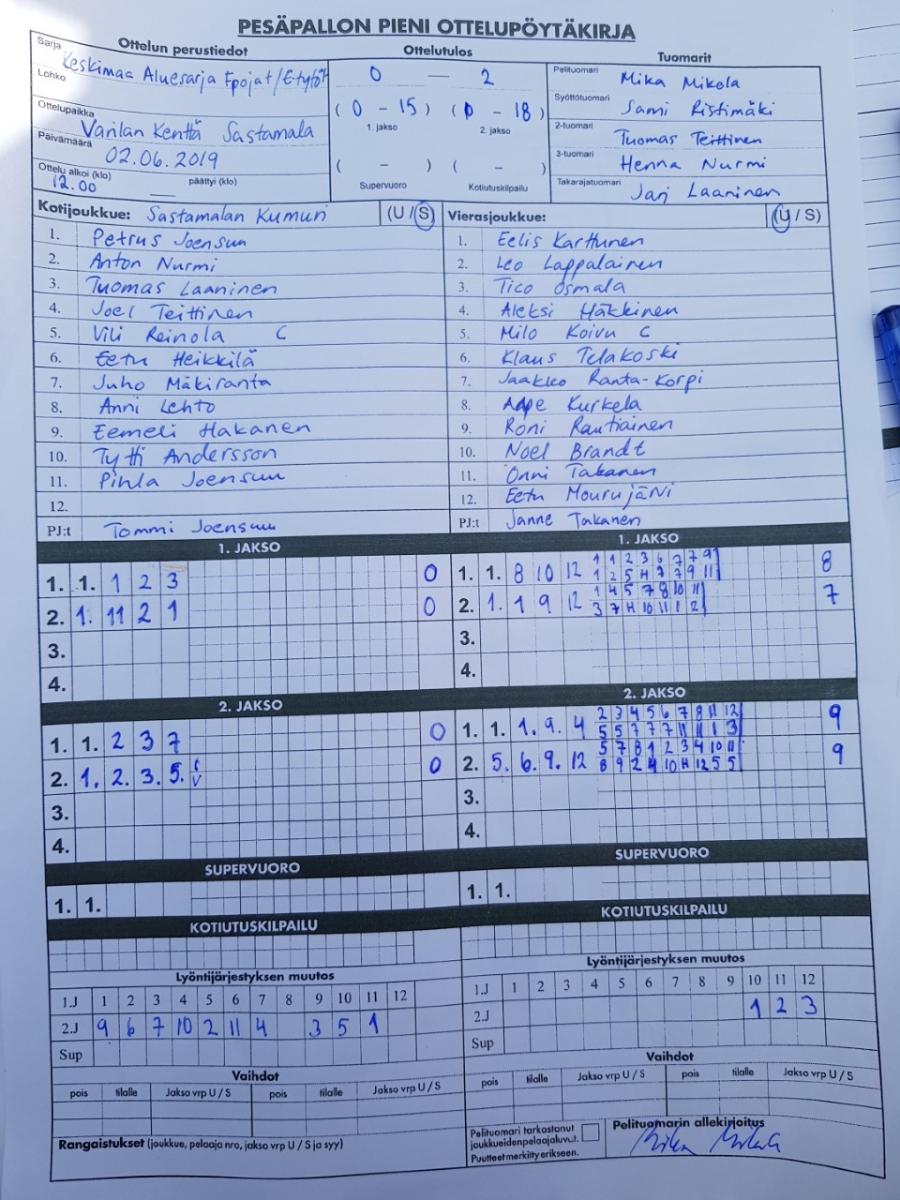 PESÄPALLON PIENI OTTELUPÖYTÄKIRJA
Ottelun perustiedot
Sarja
Keskimaa Aluesarja Epojat/Etytöt
Lohko
Ottelupaikka
Varilan Kenttä Sastamala
Päivämäärä
02.06.2019
Ottelu alkoi (klo) päättyi (klo)
12.00
Ottelutulos
0 — 2
(0 - 15) (0 - 18)
1. jakso 2. jakso
( - ) ( - )
Supervuoro Kotiutuskilpailu
Tuomarit
Pelituomari Mika Mikola
Syöttötuomari Sami Ristimäki
2-tuomari Tuomas Teittinen
3-tuomari Henna Nurmi
Takarajatuomari Jari Laaninen
Kotijoukkue: Sastamalan Kumuri (U / S)
1. Petrus Joensuu
2. Anton Nurmi
3. Tuomas Laaninen
4. Joel Teittinen
5. Vili Reinola C
6. Eetu Heikkilä
7. Juho Mäkiranta
8. Anni Lehto
9. Eemeli Hakanen
10. Tytti Andersson
11. Pihla Joensuu
12.
PJ:t Tommi Joensuu
Vierasjoukkue: (U / S)
1. Eelis Karttunen
2. Leo Lappalainen
3. Tico Osmala
4. Aleksi Häkkinen
5. Milo Koivu C
6. Klaus Telakoski
7. Jaakko Ranta-Korpi
8. Aape Kurkela
9. Roni Rautiainen
10. Noel Brandt
11. Onni Takanen
12. Eetu Mourujärvi
PJ:t Janne Takanen
1. JAKSO
1. 1. 1 2 3 0
2. 1. 11 2 1 0
3.
4.
1. JAKSO
1. 1. 8 10 12 1 1 2 3 6 7 7 9 8
1 2 5 4 7 7 9 11
2. 1. 1 9 12 1 4 5 7 8 10 11 7
3 7 4 10 11 1 2
3.
4.
2. JAKSO
1. 1. 2 3 7 0
2. 1. 2. 3. 5. 0
3.
4.
2. JAKSO
1. 1. 1. 9. 4 2 3 4 5 6 7 8 11 12 9
5 5 7 7 7 11 11 1 3
2. 5. 6. 9. 12 5 7 8 1 2 3 4 10 11 9
8 9 2 4 10 11 12 5 5
3.
4.
SUPERVUORO
1. 1.
SUPERVUORO
1. 1.
KOTIUTUSKILPAILU
KOTIUTUSKILPAILU
Lyöntijärjestyksen muutos
1.J 1 2 3 4 5 6 7 8 9 10 11 12
2.J 9 6 7 10 2 11 4 3 5 1
Sup
Lyöntijärjestyksen muutos
1.J 1 2 3 4 5 6 7 8 9 10 11 12
2.J 1 2 3
Sup
Vaihdot
pois tilalle Jakso vrp U / S pois tilalle Jakso vrp U / S
Vaihdot
pois tilalle Jakso vrp U / S pois tilalle Jakso vrp U / S
Rangaistukset (joukkue, pelaaja nro, jakso vrp U / S ja syy)
Pelituomari tarkastanut
joukkueidenpelaajaluvut.
Puutteet merkitty erikseen.
Pelituomarin allekirjoitus
Mika Mikola